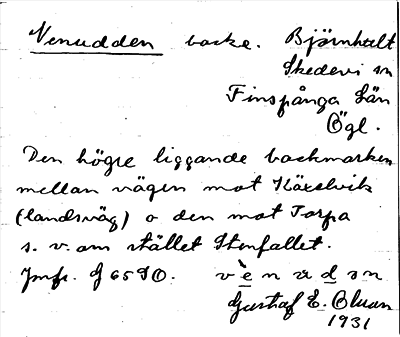 Venudden backe. Björnhult
Skedevi sn
Finspånga Län
Ögl.
Den högre liggande backmarken
mellan vägen mot Käxelvik
(landsväg) o den mot Torpa
s. v. om stället Stenfallet.
Jmfr. G 65 SO. venudsn
Gustaf E. Bluan
1931